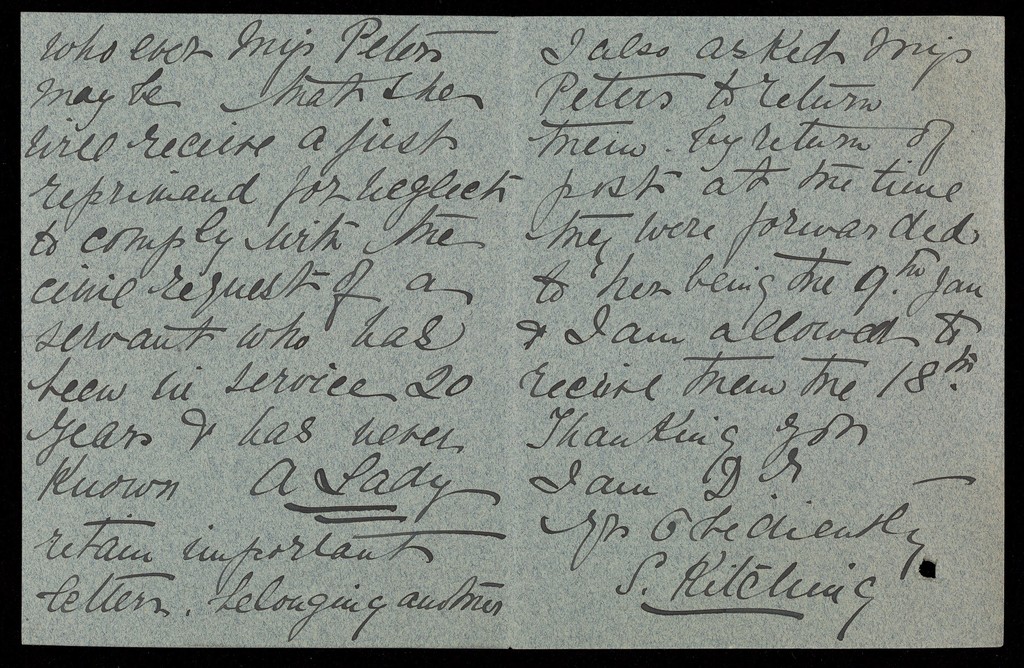 who ever Miss Peters
may be that she
will receive a just
reprimand for neglect
to comply with the
civil request of a
servant who has
been in service 20
years & has never
known A Lady
retain important
letters. belonging another
I also asked Miss
Peters to return
them. by return of
post at the time
they were forwarded
to her being the 9th Jan
& I am allowed to
receive them the 18th.
Thanking you
I am D Sr
yrs Obediently
S. Kitching